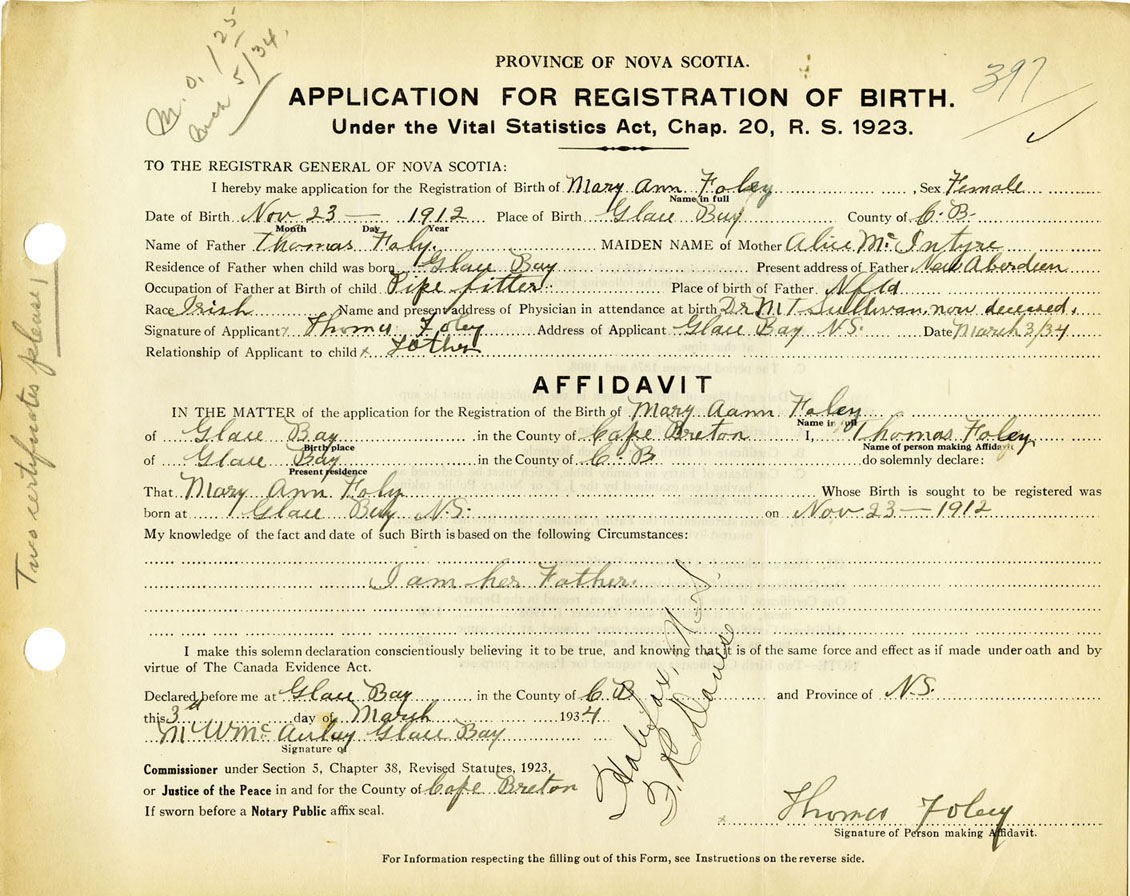 M. O. 1/25
March 5/34.
397
PROVINCE OF NOVA SCOTIA.
APPLICATION FOR REGISTRATION OF BIRTH.
Under the Vital Statistics Act, Chap. 20, R. S. 1923.
TO THE REGISTRAR GENERAL OF NOVA SCOTIA:
I hereby make application for the Registration of Birth of Mary Ann Foley, Sex Female
Name in full
Date of Birth Nov 23 — 1912 Place of Birth Glace Bay County of C. B.
Month Day Year
Name of Father Thomas Foly. MAIDEN NAME of Mother Alice Mc Intyre
Residence of Father when child was born Glace Bay Present address of Father New Aberdeen
Occupation of Father at Birth of child Pipe fitter Place of birth of Father Nfld
Race Irish Name and present address of Physician in attendance at birth Dr M T Sullivan, now deceased.
Signature of Applicant Thomas Foley Address of Applicant Glace Bay N.S. Date March 3/34
Relationship of Applicant to child x Father
AFFIDAVIT
IN THE MATTER of the application for the Registration of the Birth of Mary Aann Foley
Name in full
of Glace Bay in the County of Cape Breton I, Thomas Foley,
Birth place Name of person making Affidavit
of Glace Bay in the County of C. B do solemnly declare:
Present residence
That Mary Ann Foly Whose Birth is sought to be registered was
born at Glace Bay N.S. on Nov 23 — 1912
My knowledge of the fact and date of such Birth is based on the following Circumstances:
I am her Father.
I make this solemn declaration conscientiously believing it to be true, and knowing that it is of the same force and effect as if made under oath and by
virtue of The Canada Evidence Act.
Declared before me at Glace Bay in the County of C B and Province of N.S.
this 3rd day of March 1934
M W Mc Aulay Glace Bay
Signature of
Commissioner under Section 5, Chapter 38, Revised Statutes, 1923,
or Justice of the Peace in and for the County of Cape Breton
If sworn before a Notary Public affix seal.
Thomas Foley
Signature of Person making Affidavit.
For Information respecting the filling out of this Form, see Instructions on the reverse side.
Two certificates please!
Halifax, N.S.
Davis